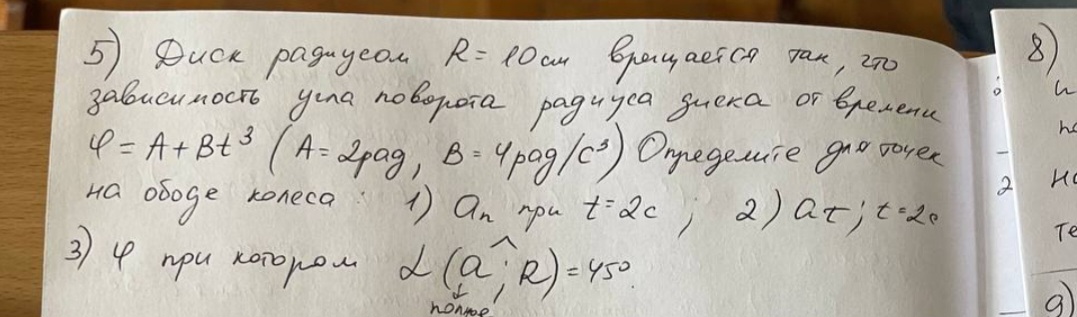 5) Диск радиусом R = 10 см вращается так, что
зависимость угла поворота радиуса диска от времени
φ = A + Bt³ (A = 2рад, B = 4рад/с³) Определите для точек
на ободе колеса: 1) aₙ при t = 2с ; 2) aτ; t = 2с
3) φ при котором α (a ^; R) = 45°.
полное
8)
9)